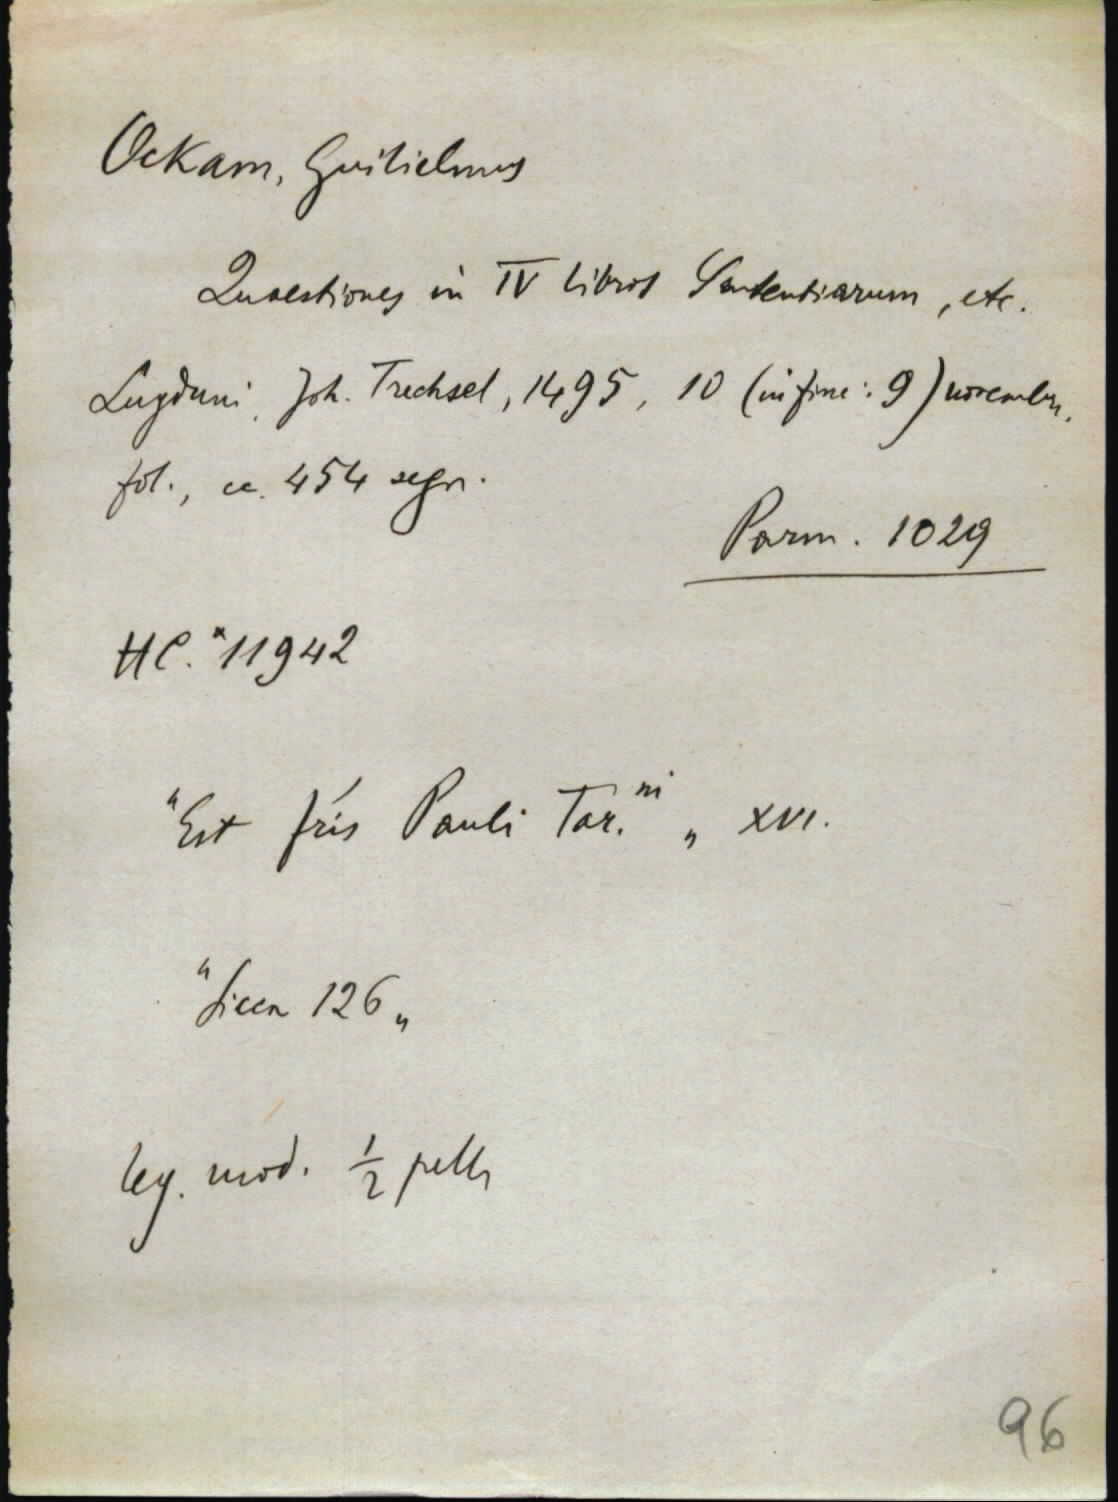 Ockam, Guilielmus
Quaestiones in IV libros Sententiarum, etc.
Lugduni, Joh. Trechsel, 1495, 10 (in fine: 9) novembr.
fol., cc. 454 segn.
Parm. 1029
HC.*11942
"Est fr̃is Pauli Tar.ni" XVI.
126"
leg. mod. 1/2 pelle
96